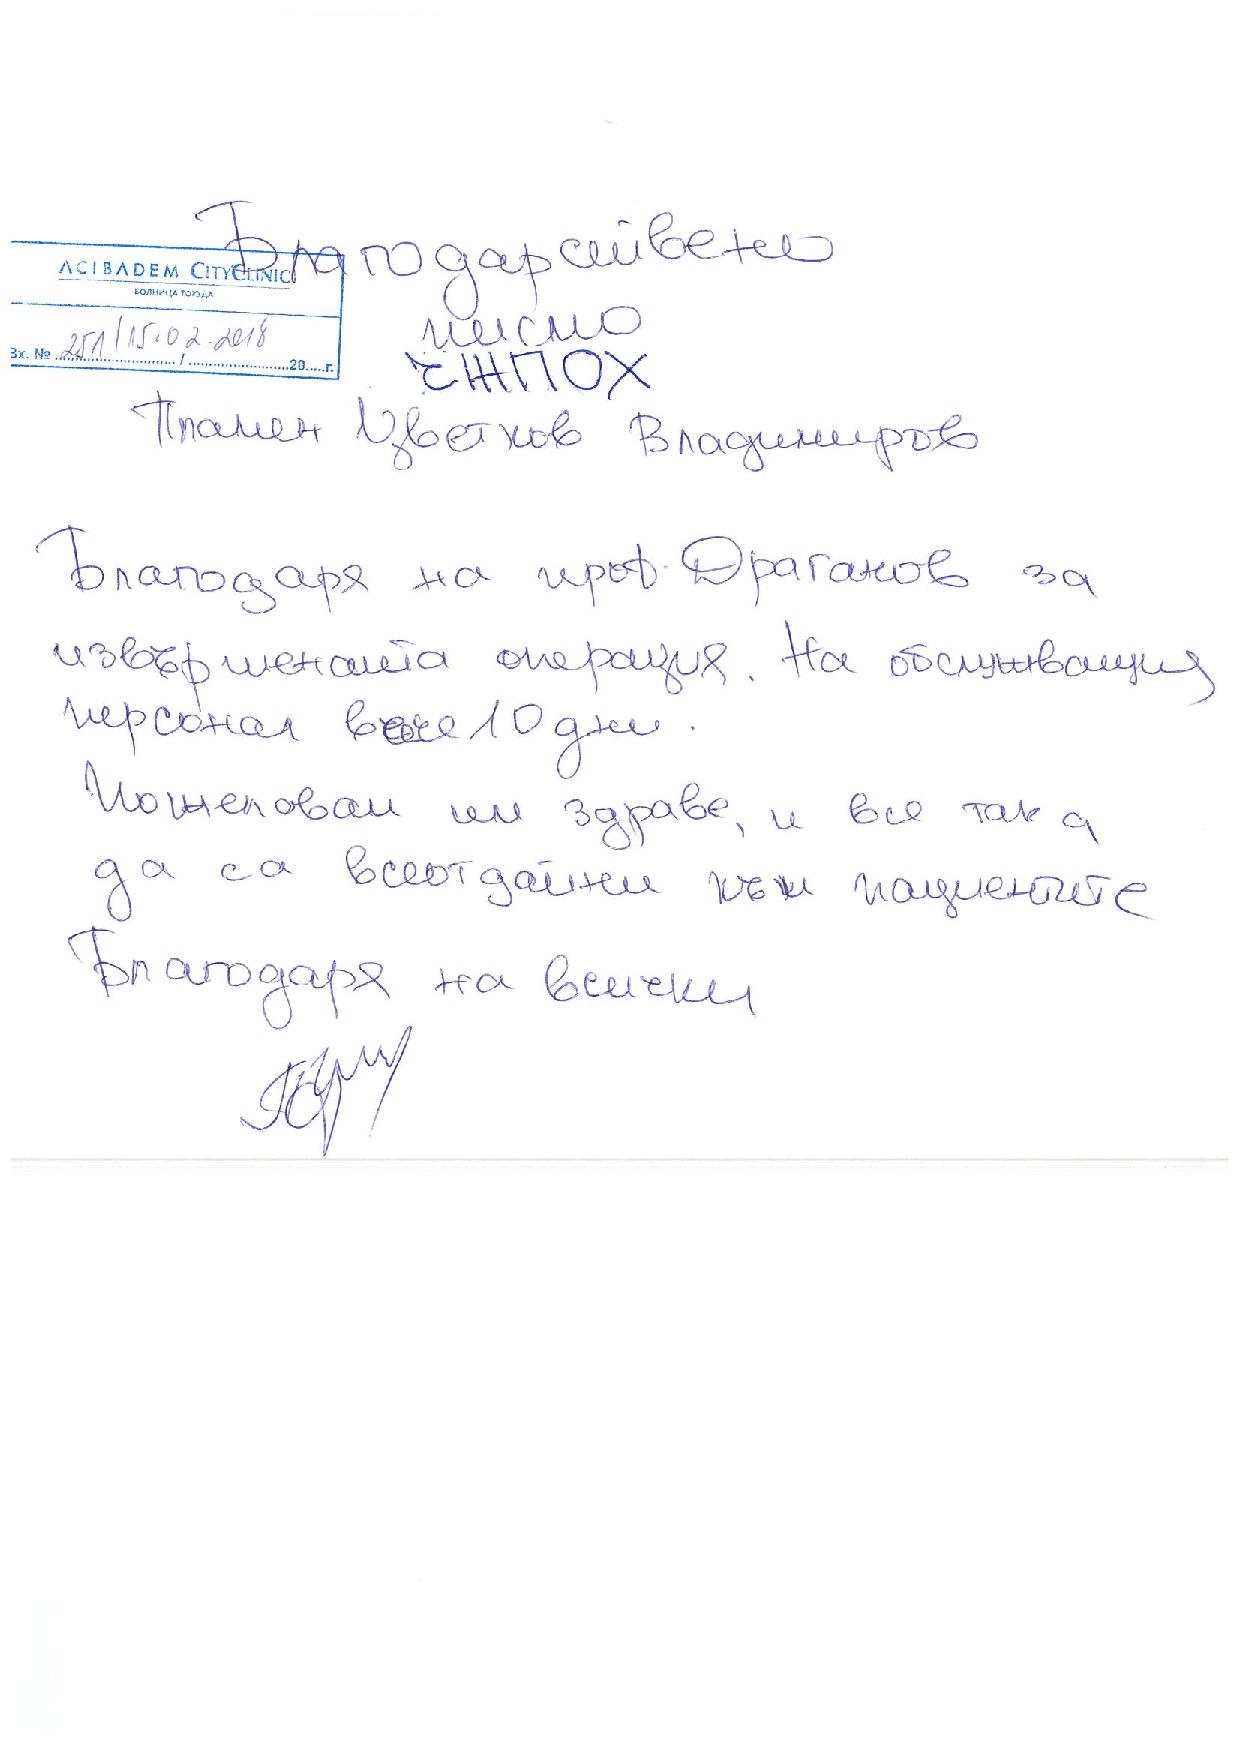 Благодарствено
ACIBADEM CITYCLINIC
БОЛНИЦА ТОКУДА
писмо
Вх. № 251/15.02.2018 / 20.....г.
ЧЖПОХ
Пламен Цветков Владимиров
Благодаря на проф. Драганов за
извършената операция. На обслужващия
персонал вече 10 дни.
Пожелавам им здраве, и все така
да са всеотдайни към пациентите
Благодаря на всички